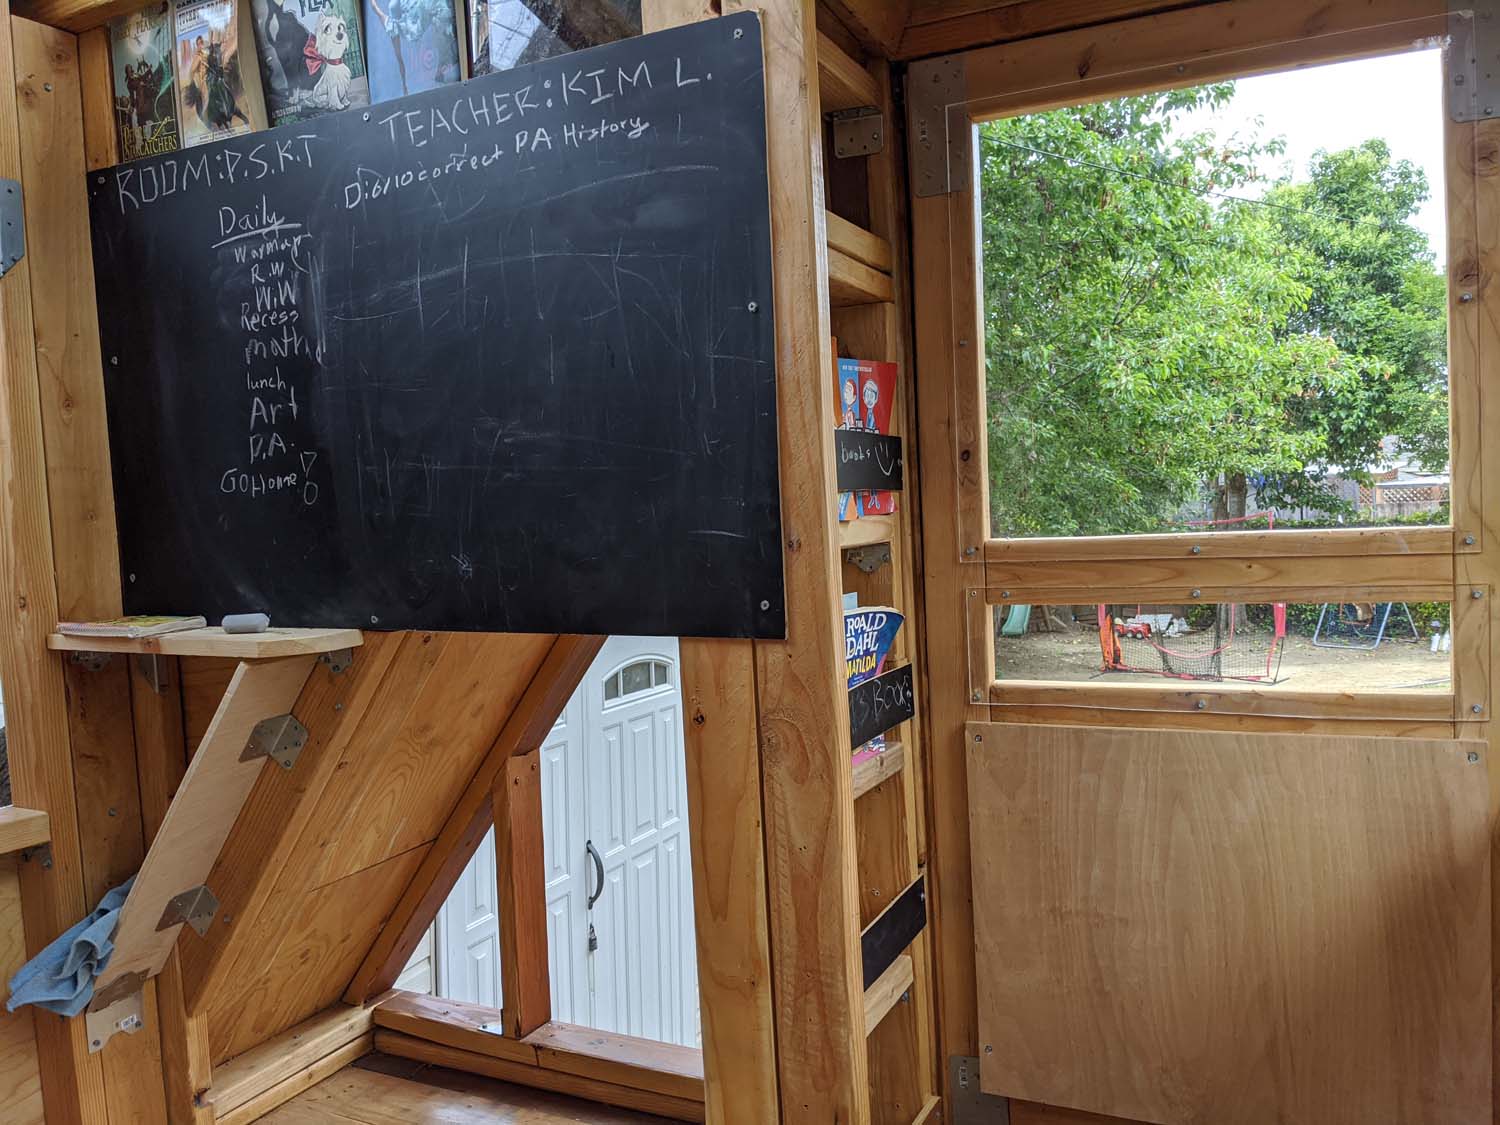 STARCATCHERS
ROOM:P.S.K.T
TEACHER:KIM L.
PA History
Daily
Warmup
R.W
WiW
Recess
math
lunch
Art
P.A.
Go Home!
books
ROALD
DAHL
MATILDA